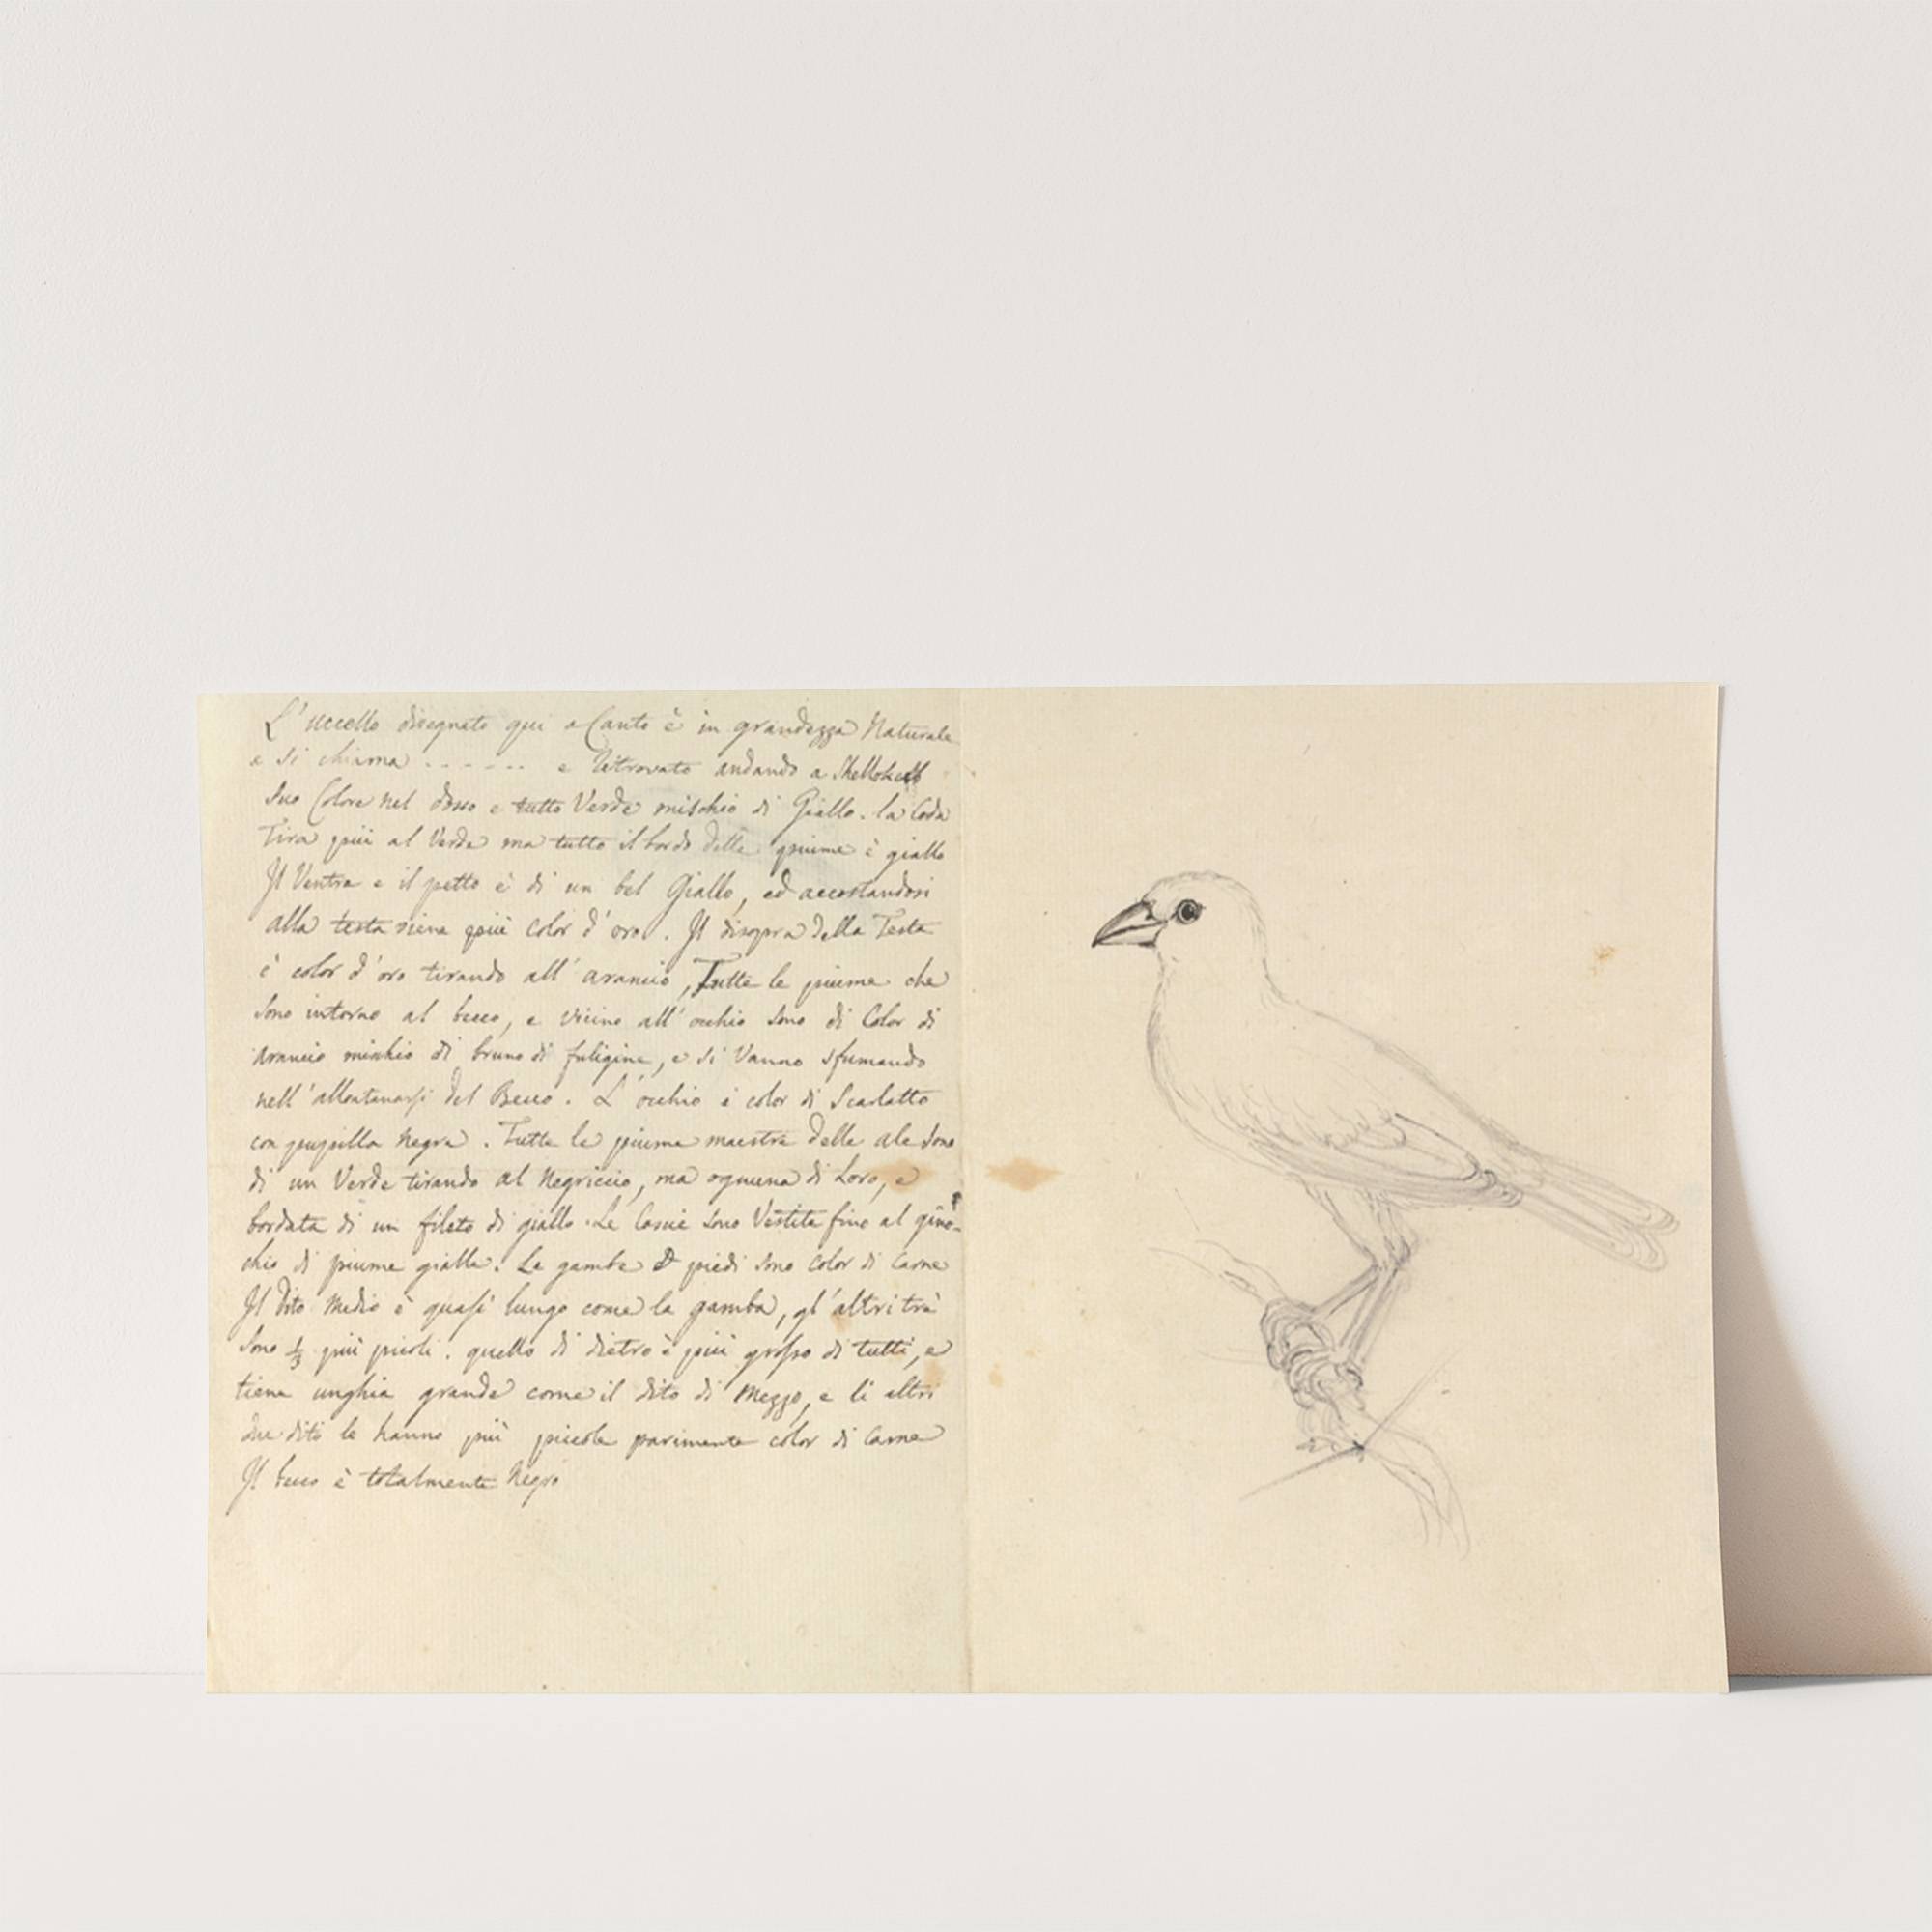 L'uccello disegnato qui a Canto è in grandezza Naturale
e si chiama - - - - - - e Ritrovato andando a
Suo Colore nel dosso e tutto Verde mischio di Giallo. la Coda
Tira più al Verde ma tutto il bordo delle piume è giallo
Il Ventre e il petto è di un bel Giallo, ed accostandosi
alla testa viene più Color d'oro. Il disopra della Testa
è color d'oro tirando all'arancio, Tutte le piume che
sono intorno al becco, e vicino all'occhio sono di Color di
Arancio mischio di bruno di fuligine, e si Vanno sfumando
nell'allontanarsi del Becco. L'occhio è color di Scarlatto
con pupilla Negra. Tutte le piume maestre delle ale sono
di un Verde tirando al Negriccio, ma ognuna di Loro, e
bordata di un fileto di giallo. Le Coscie sono Vestite fino al gino-
chio di piume gialle. Le gambe e piedi sono Color di Carne
Il Dito Medio è quasi lungo come la gamba, gl'altri trè
sono 1/3 più picoli. quello di dietro è più grosso di tutti, e
tiene unghia grande come il dito di Mezzo, e li altri
due diti le hanno più piccole parimente color di Carne
Il becco è totalmente Negro